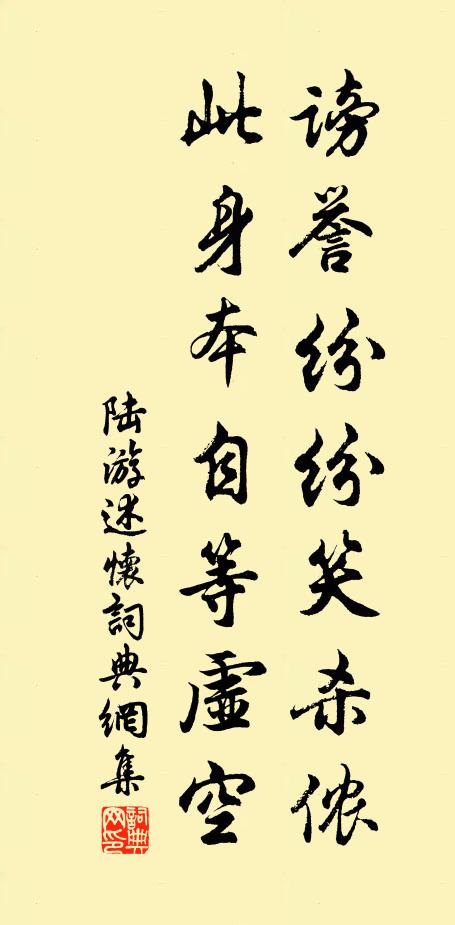 谤誉纷纷笑杀侬
此身本自等虚空
陆游述懷詞典網集
詞典网印